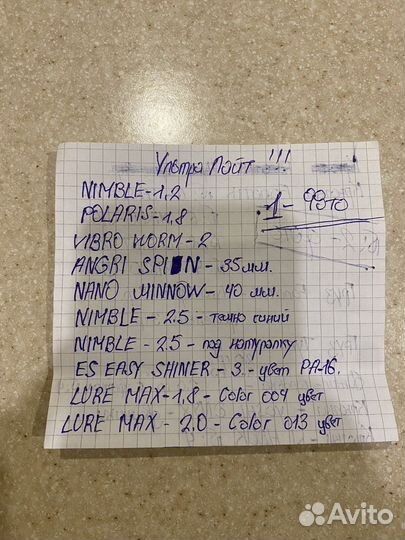 Ультра Лайт !!!
1 - Фото
NIMBLE - 1,2
POLARIS - 1,8
VIBRO WORM - 2
ANGRI SPIN - 35 мм.
NANO MINNOW - 40 мм.
NIMBLE - 2.5 - темно синий
NIMBLE - 2.5 - под натуралку
ES EASY SHINER - 3. - цвет PA-16.
LURE MAX - 1,8 - Color 004 цвет
LURE MAX - 2,0 - Color 013 цвет
Avito